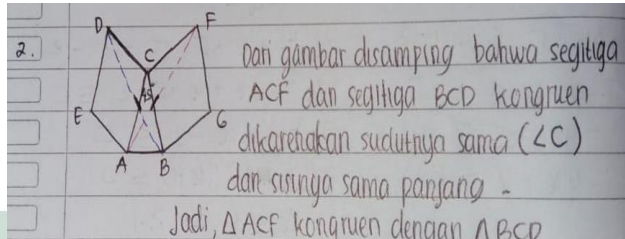 2.
D
F
C
45
E
G
A
B
Dari gambar disamping bahwa segitiga
ACF dan segitiga BCD kongruen
dikarenakan sudutnya sama (∠C)
dan sisinya sama panjang.
Jadi, △ ACF kongruen dengan △ BCD